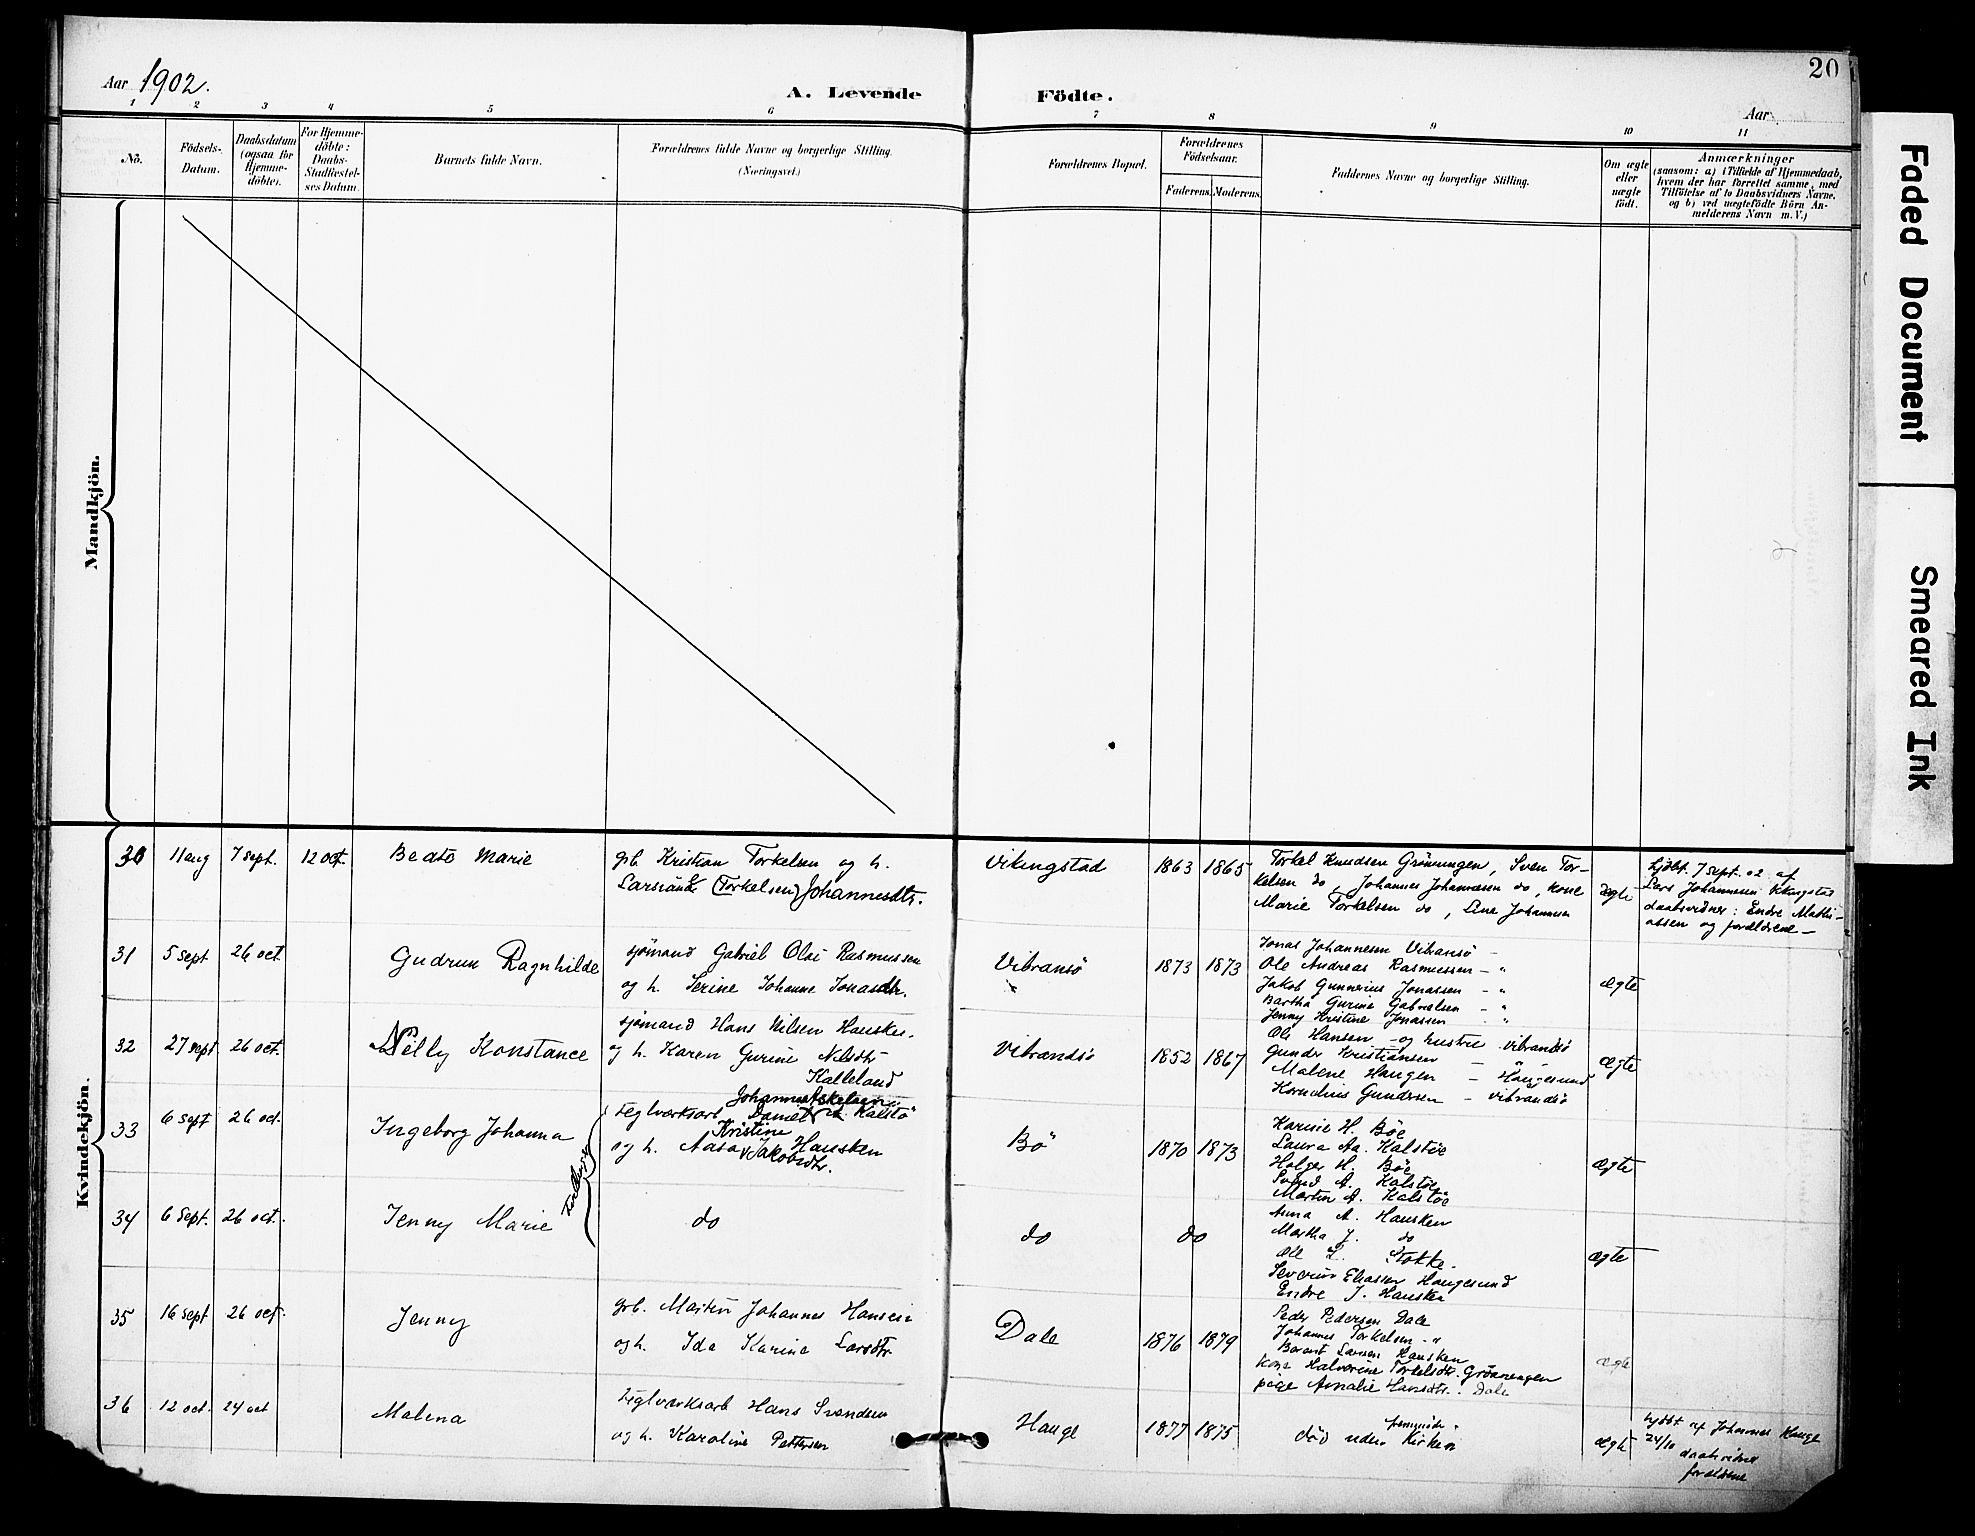 Aar 1902.
A. Levende Födte.
20
Aar
1 2 3 4 5 6 7 8 9 10 11
No.
Födsels-
Datum.
Daabsdatum
(ogsaa for
Hjemme-
döbte).
For Hjemme-
döbte:
Daabs-
Stadfæstel-
ses Datum.
Barnets fulde Navn.
Forældrenes fulde Navne og borgerlige Stilling.
(Næringsvei.)
Forældrenes Bopæl.
Forældrenes
Födselsaar.
Faderens. Moderens.
Faddernes Navne og borgerlige Stilling.
Om ægte
eller
uægte
födt.
Anmærkninger
(saasom: a) i Tilfælde af Hjemmedaab,
hvem der har forrettet samme, med
Tilföielse af to Daabsvidners Navne,
og b) ved uægtefödte Börn An-
melderens Navn m. V.)
Mandkjön.
Kvindekjön.
30 11 aug 7 sept. 12 oct. Beate Marie
grb. Kristian Torkelsen og h.
(Torkelsen) Johannesdtr.
Vikingstad 1863 1865
Torkel Knudsen Grönningen, Sven Tor-
kelsen do, Johannes Johannesen do, kone
Marie Torkelsen do, Line Johannesen
ægte
hjdbt. 7 sept. 02 af
Lars Johannesen Vikingstad
daabsvidner: Endre Mathi-
assen og forældrene –
31 5 sept 26 oct. Gudrun Ragnhilde
sjömand Gabriel Olai Rasmussen
og h. Serine Johanne Jonasdtr.
Vibransö 1873 1873
Jonas Johannesen Vibransö –
Ole Andreas Rasmussen – "
Jakob Gunnerius Jonassen – "
Bertha Gurine Gabrielsen – "
Jenny Kristine Jonassen – "
ægte
32 27 sept 26 oct. Nelly Konstance
sjömand Hans Nilsen Hausken
og h. Karen Gurine Nilsdtr
Kalleland
Vibrandsö 1852 1867
Ole Hansen – og hustru Vibrandsö
Gunder Kristiansen –
Malene Haugen – Haugesund
Kornelius Gundersen – Vibrandsö
ægte
33 6 sept 26 oct. Ingeborg Johanna
Johannes
teglverksarb Daniel Kalstö
Kristine
og h. Aasa Jakobsdtr. Hausken
Bö 1870 1873
Karine H. Böe
Laura Aa. Kalstöe
Holger H. Böe
Svend A. Kalstöe
Martin A. Kalstöe
ægte
Tvillinger
34 6 sept. 26 oct. Jenny Marie
do do do
Anna A. Hausken
Martha J. do
Ole L. Stokke.
Severin Eliassen Haugesund
Endre J. Hausken
ægte
35 16 sept 26 oct. Jenny
grb. Martin Johannes Hansen
og h. Ida Karine Larsdtr
Dale 1876 1879
Peder Pedersen Dale
Johannes Torkelsen – "
Berent Larsen Hausken
kone Halvorine Torkelsdtr. Grönningen
pige Amalie Hansdtr. Dale
ægte
36 12 oct. 24 oct Malena
teglverksarb Hans Svendsen
og h. Karoline Pettersen
Hauge 1877 1875
död uden
Kirken
ægte
hjdbt af Johannes Hauge
24/10 daabsvidner
forældrene
Faded Document
Smeared Ink